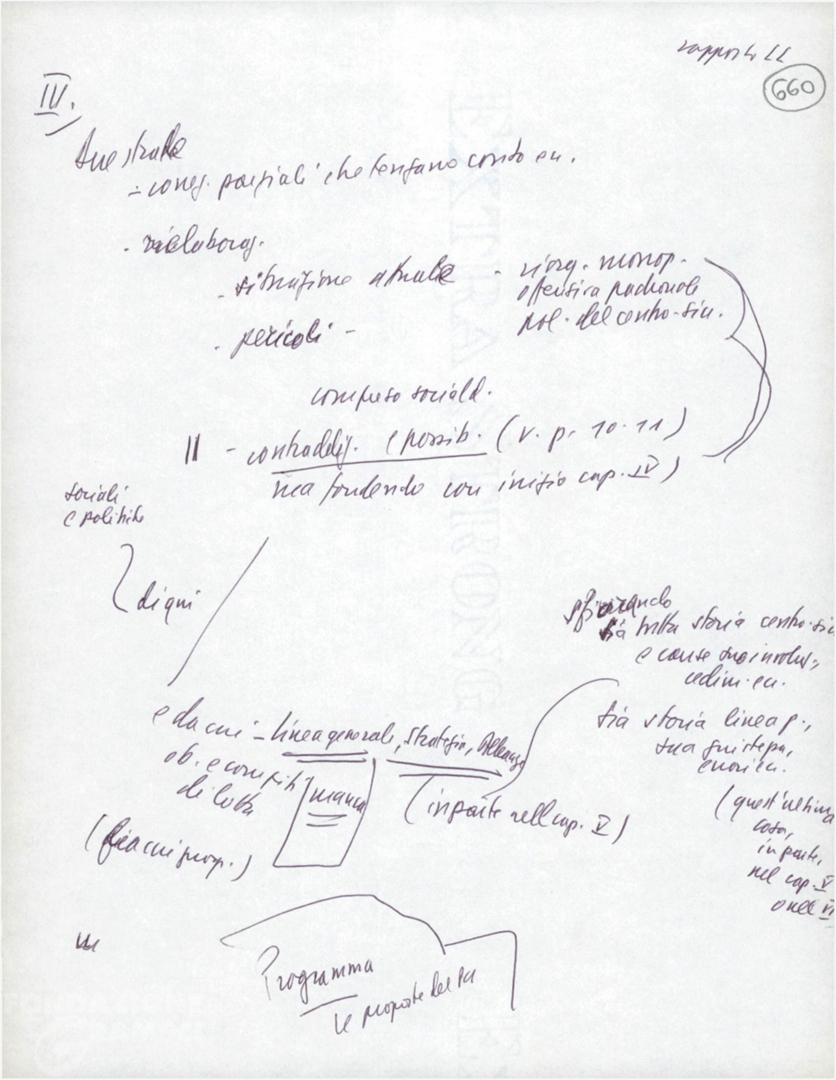 rapporto LL
660
IV.
due strade
- correz. parziali che tengano conto ecc.
- rielaboraz.
- situazione attuale - riorg. monop.
offensiva padronale
pol. del centro-sin.
- pericoli -
compreso sociald.
|| - contraddiz. e possib. (v. p. 10-11)
ma fondendo con inizio cap. IV)
sociali
e politiche
di qui
sia tutta storia centro-sin
e cause
cedim. ecc.
sia storia linea p.,
sua giustezza,
errori ecc.
(quest'ultima
cosa,
in parte,
nel cap. V
o nel VI
e da cui - linea generale, strategia, alleanze
ob. e compiti
di lotta
manca
(in parte nell cap. V)
Programma
le proposte del PCI